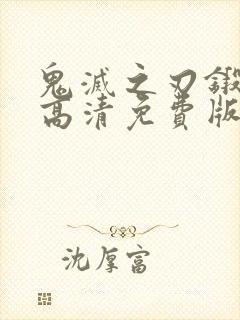 鬼滅之刃鍛
高清免費版
沈厚富